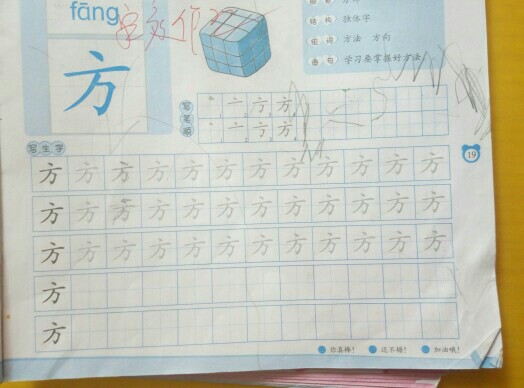 fāng
方
结构 独体字
组词 方法 方向
造句 学习要掌握好方法
写笔顺
丶 一 亠 方 方
丶 一 亠 方 方
写生字
19
方 方 方 方 方 方 方 方 方 方 方
方 方 方 方 方 方 方 方 方 方 方
方 方 方 方 方 方 方 方 方 方 方
方
方
你真棒! 还不错! 加油哦!